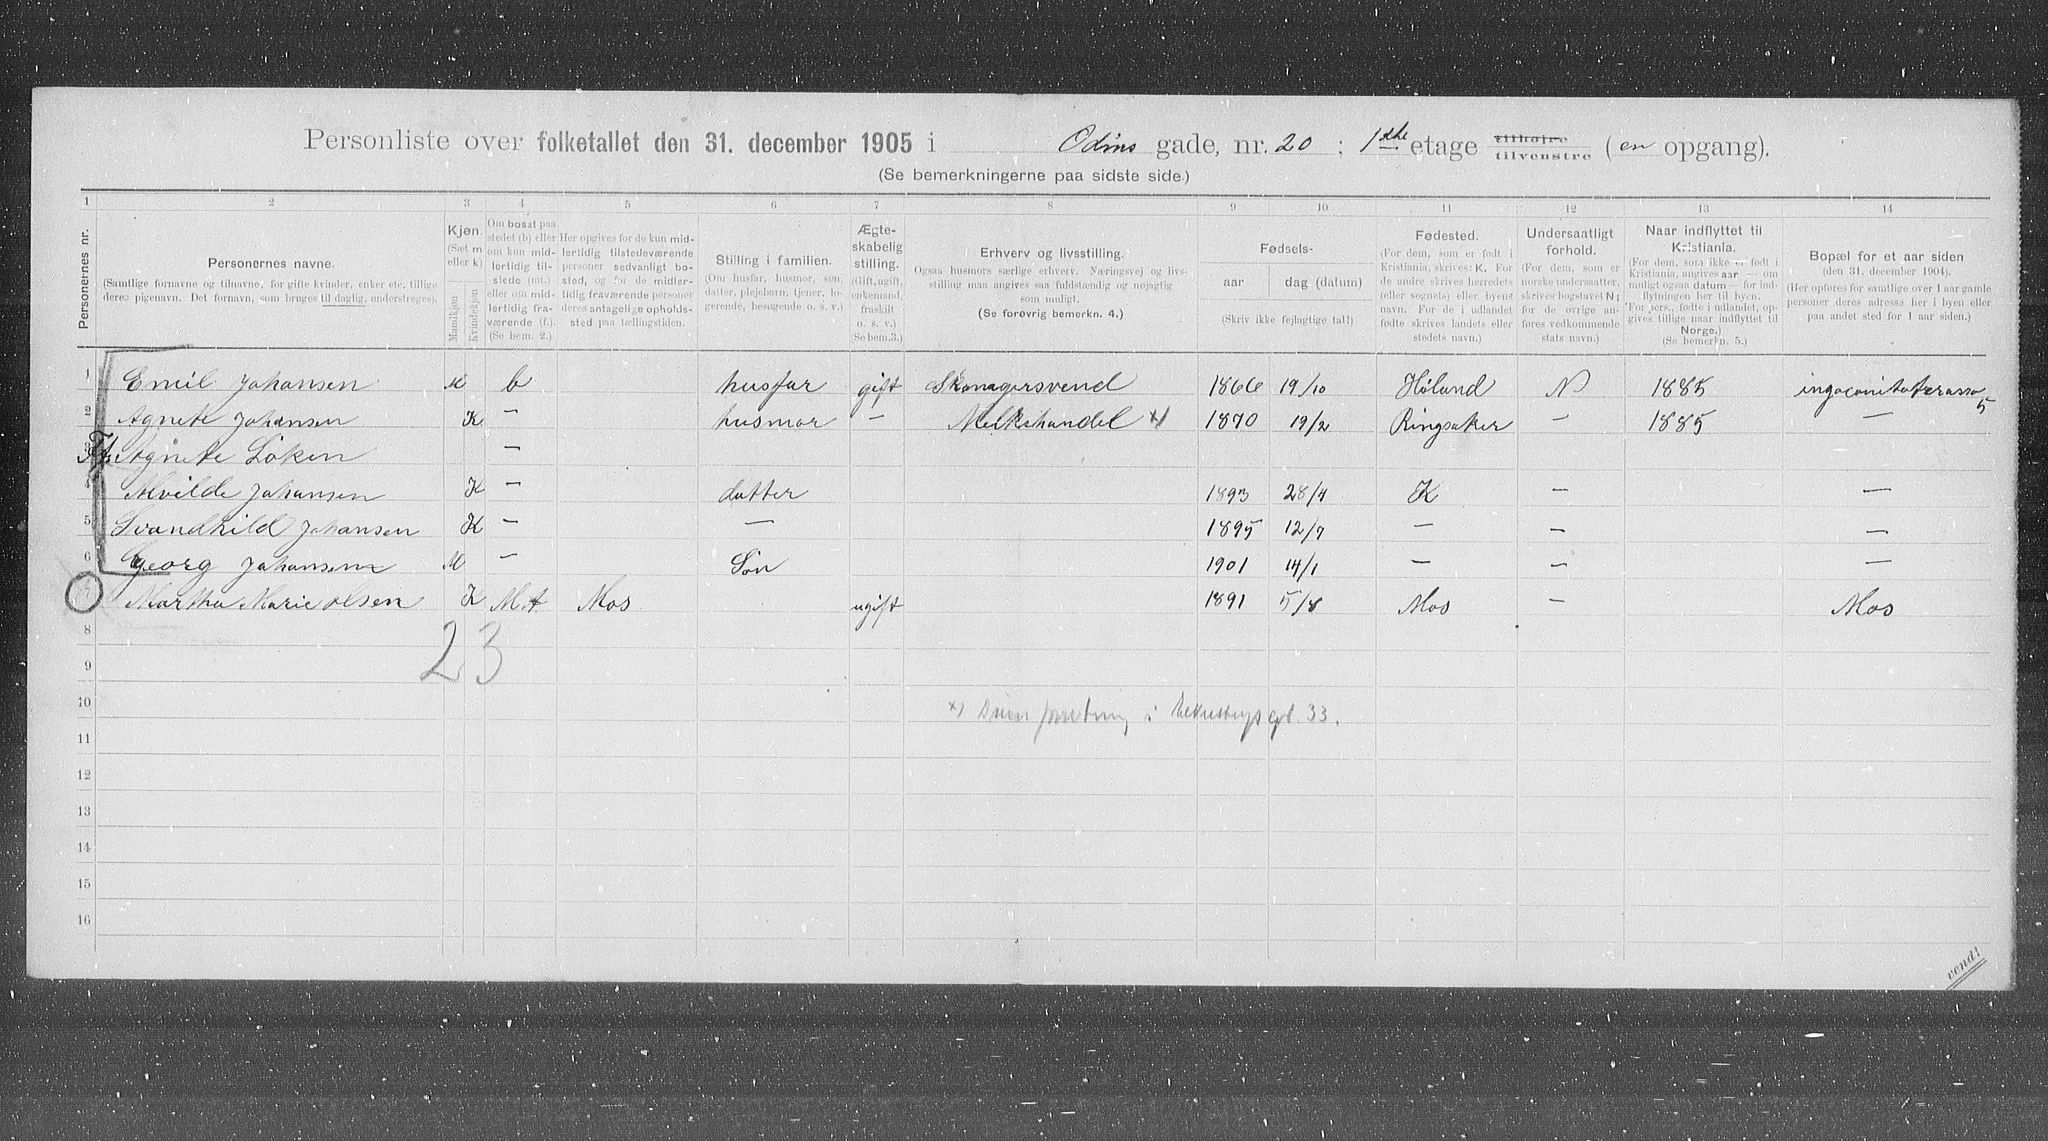 Personliste over folketallet den 31. december 1905 i Odins gade, nr. 20 ; 1ste etage tilhøjre tilvenstre (en opgang).
(Se bemerkningerne paa sidste side.)
1 2 3 4 5 6 7 8 9 10 11 12 13 14
Personernes nr.
Personernes navne.
(Samtlige fornavne og tilnavne, for gifte kvinder, enker etc. tillige deres pigenavn. Det fornavn, som bruges til daglig, understreges).
Kjøn.
(Sæt m eller k)
Mandkjøn
Kvindekjøn
Om bosat paa stedet (b) eller om kun midlertidig tilstede (mt.) eller om midlertidig fraværende (f.).
(Se bem. 2.)
Her opgives for de kun midlertidig tilstedeværende personer sedvanligt bosted, og for de midlertidig fraværende personer deres antagelige opholdssted paa tællingstiden.
Stilling i familien.
(Om husfar, husmor, søn, datter, plejebørn, tjener, logerende, besøgende o. s. v.)
Ægteskabelig stilling.
(Gift, ugift, enkemand, fraskilt o. s. v.)
(Se bem. 3.)
Erhverv og livsstilling.
Ogsaa husmors særlige erhverv. Næringsvej og livsstilling maa angives saa fuldstændig og nøjagtig som muligt.
(Se forøvrig bemerkn. 4.)
Fødsels-
aar
dag (datum)
(Skriv ikke fejlagtige tal!)
Fødested.
(For dem, som er født i Kristiania, skrives: K. For de andre skrives herredets (eller sognets) eller byens navn. For de i udlandet fødte skrives landets eller stedets navn.)
Undersaatligt forhold.
(For dem, som er norske undersaatter, skrives bogstavet N; for de øvrige angives vedkommende stats navn.)
Naar indflyttet til Kristiania.
(For dem, som ikke er født i Kristiania, angives aar — om muligt ogsaa datum — for indflytningen her til byen. For pers., fødte i udlandet, opgives tillige naar indflyttet til Norge.)
(Se bemerkn. 5.)
Bopæl for et aar siden
(den 31. december 1904).
(Her opføres for samtlige over 1 aar gamle personer deres adresse her i byen eller paa andet sted for 1 aar siden.)
1 Emil Johansen M b husfar gift Skomagersvend 1866 19/10 Høland N 1885
2 Agnete Johansen K — husmor — Melkehandel x) 1870 19/2 Ringsaker — 1885 —
3 Agnete Løken —
4 Alvilde Johansen K — datter 1893 28/4 K — —
5 Svandhild Johansen K — — 1895 12/7 — — —
6 Georg Johansen M — Søn 1901 14/1 — — —
7 Martha Marie Olsen K M.t Mos ugift 1891 5/8 Mos — Mos
8
23
9
10 x) i 33.
11
12
13
14
15
16
vend!